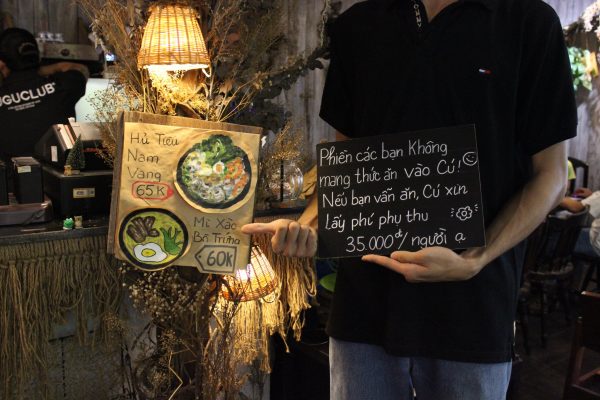 UGUCLUB
Hủ Tiếu
Nam
Vang
65K
Mì Xào
Bò Trứng
60K
Phiền các bạn Không
mang thức ăn vào Cú!
Nếu bạn vẫn ăn, Cú xin
Lấy phí phụ thu
35.000đ/ người ạ